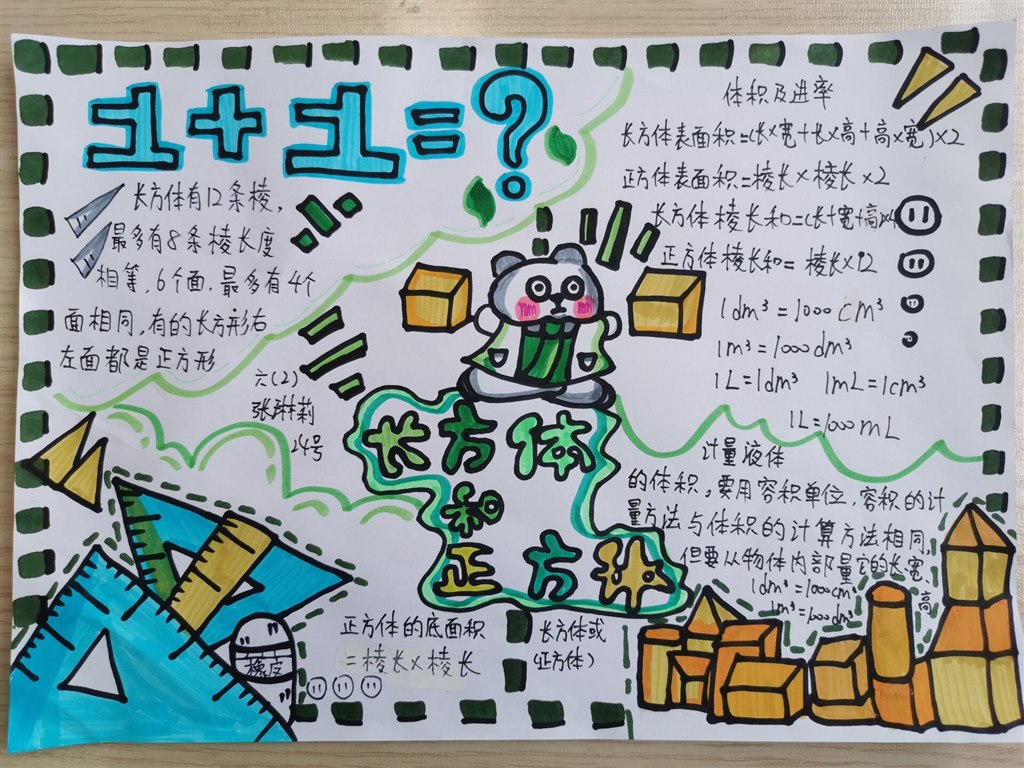 1+1=?
长方体有12条棱,
最多有8条棱长度
相等,6个面,最多有4个
面相同,有的长方形右
左面都是正方形
六(2)
张琳莉
24号
体积及进率
长方体表面积=(长×宽+长×高+高×宽)×2
正方体表面积=棱长×棱长×2
长方体棱长和=(长+宽+高)×4
正方体棱长和=棱长×12
1dm³=1000cm³
1m³=1000dm³
1L=1dm³ 1mL=1cm³
1L=1000mL
长方体
和
正方体
计量液体
的体积,要用容积单位,容积的计
量方法与体积的计算方法相同,
但要从物体内部量它的长、宽、
高
1dm³=1000cm³
1m³=1000dm³
橡皮
正方体的底面积
=棱长×棱长
长方体或
(正方体)